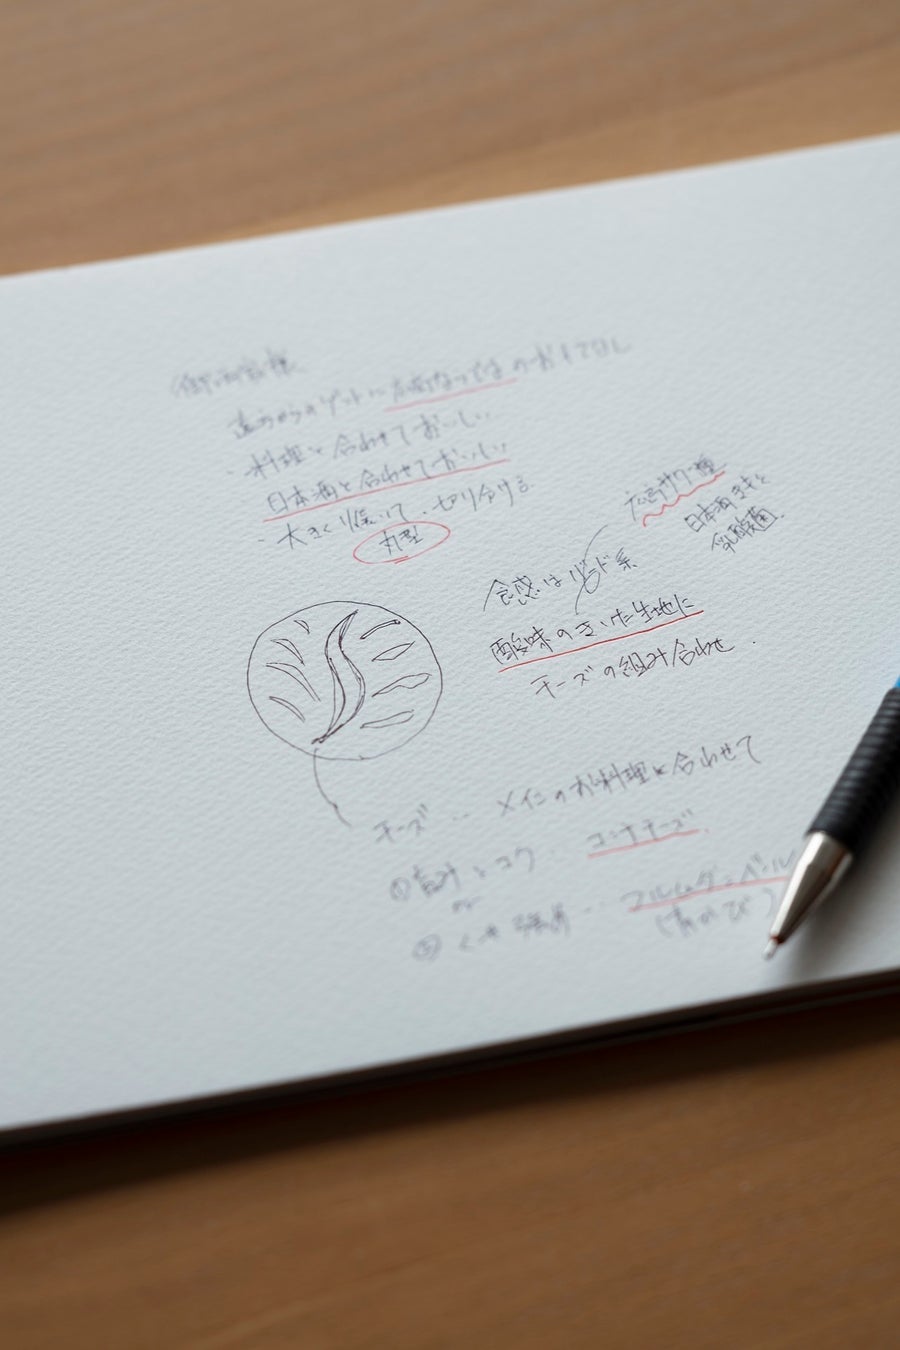 遠方からのゲストに広島ならではのおもてなし
・料理と合わせておいしい
日本酒と合わせておいしい
・大きく焼いて、切り分ける
丸型
広島サワー種
日本酒きもと
乳酸菌
食感はリード系
酸味のきいた生地に
チーズの組み合わせ.
チーズ‥メインのお料理と合わせて
①旨みとコク‥コンテチーズ.
or
②くせ強‥フルムダンベール
(青かび)